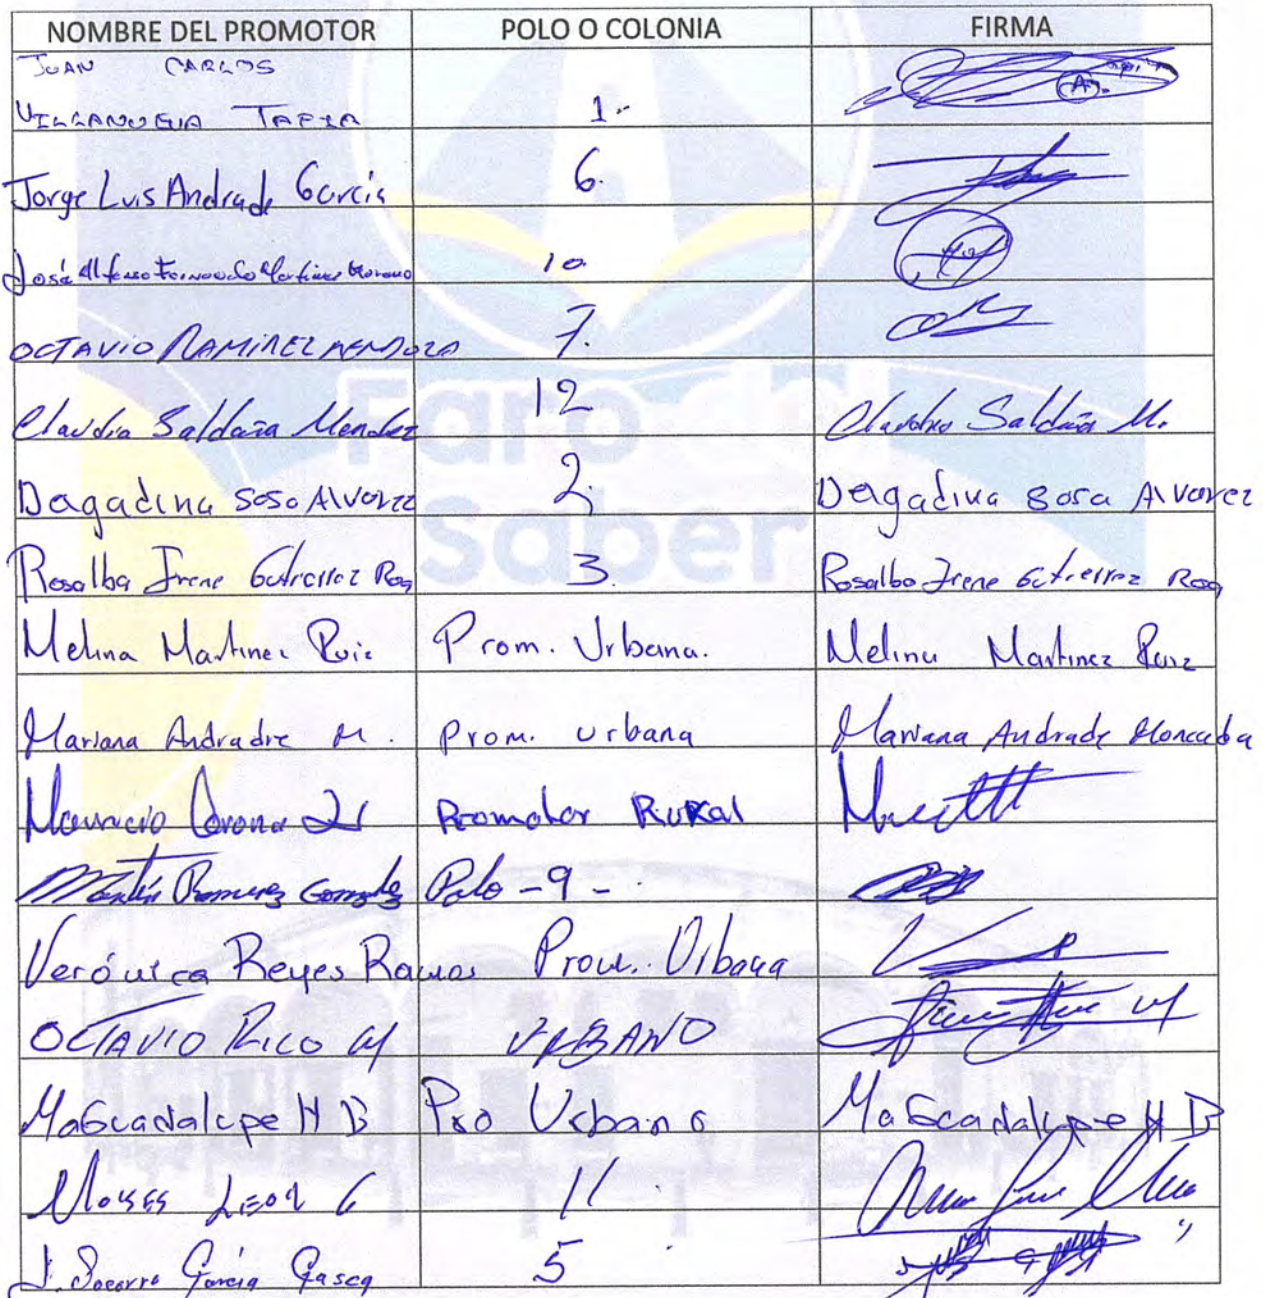 NOMBRE DEL PROMOTOR POLO O COLONIA FIRMA
JUAN CARLOS
VILLANUEVA TAPIA 1.-
Jorge Luis Andrade Garcia 6.
José Alfonso Fernando Martinez Moreno 10.
OCTAVIO RAMIREZ MENDOZA 7.
Claudia Saldaña Mendez 12 Claudia Saldaña M.
Dagadina Sosa Alvarez 2. Dagadina Sosa Alvarez
Rosalba Irene Gutierrez 3. Rosalba Irene Gutierrez
Melina Martinez Ruiz Prom. Urbana. Melina Martinez Ruiz
Mariana Andradre M. Prom. urbana Mariana Andrade Moncada
Mauricio Corona Promotor Rural
Martín Ramirez Gonzalez Polo - 9 -
Verónica Reyes Ramos Prom. Urbana
OCTAVIO RICO M URBANO
Ma Guadalupe H B Pro Urbano Ma Guadalupe H B
Moises Leon G 11.
J. Socorro Garcia Gasca 5
Faro del
Saber